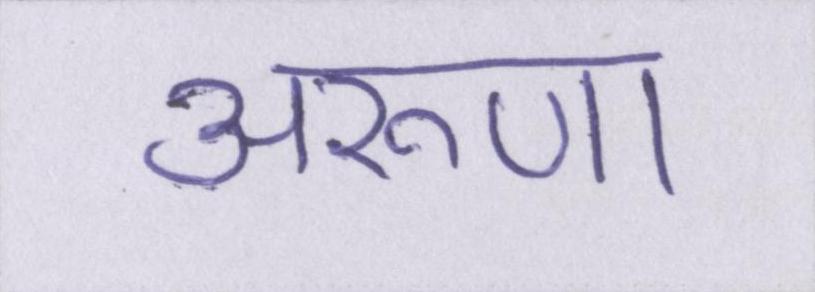 अरूणा